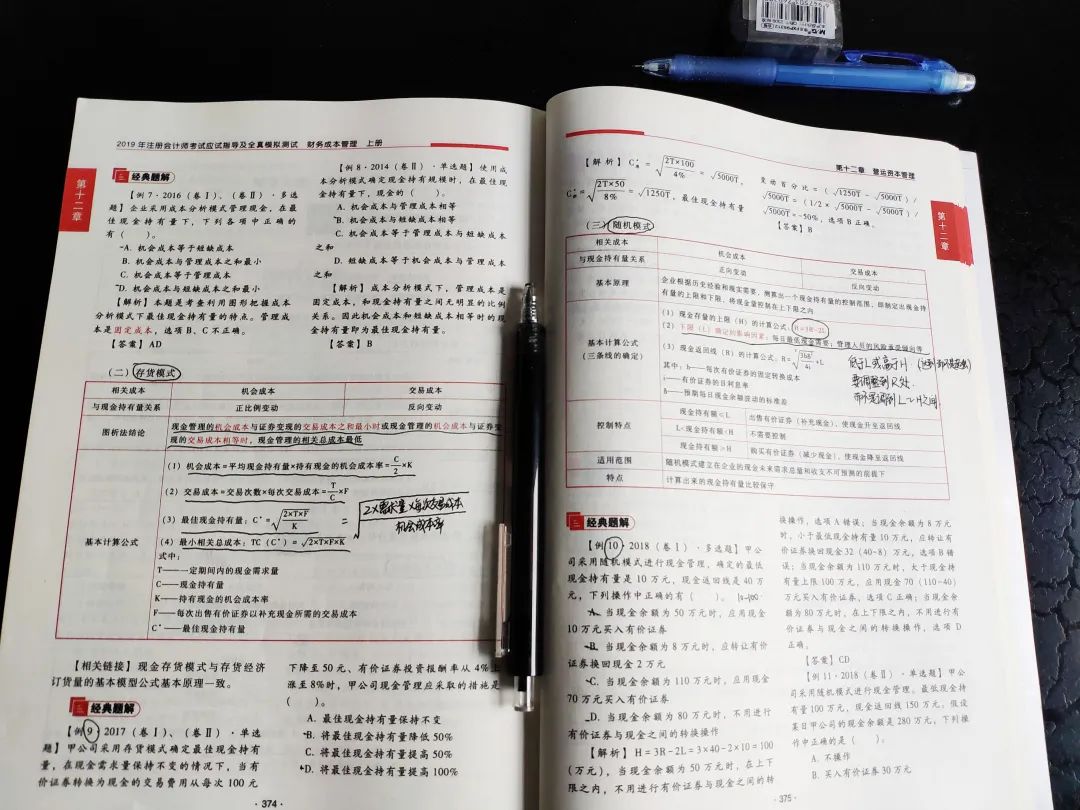 2019年注册会计师考试应试指导及全真模拟测试 财务成本管理 上册
第十二章
经典题解
【例7·2016（卷Ⅰ）、（卷Ⅱ）·多选
题】企业采用成本分析模式管理现金，在最
佳现金持有量下，下列各项中正确的
有（ ）。
A. 机会成本等于短缺成本
B. 机会成本与管理成本之和最小
C. 机会成本等于管理成本
D. 机会成本与短缺成本之和最小
【解析】本题是考查利用图形把握成本
分析模式下最佳现金持有量的特点。管理成
本是固定成本，选项B、C不正确。
【答案】AD
【例8·2014（卷Ⅱ）·单选题】使用成
本分析模式确定现金持有规模时，在最佳现
金持有量下，现金的（ ）。
A. 机会成本与管理成本相等
B. 机会成本与短缺成本相等
C. 机会成本等于管理成本与短缺成本
之和
D. 短缺成本等于机会成本与管理成本
之和
【解析】成本分析模式下，管理成本是
固定成本，和现金持有量之间无明显的比例
关系。因此机会成本和短缺成本相等时的现
金持有量即为最佳现金持有量。
【答案】B
（二）存货模式
相关成本 机会成本 交易成本
与现金持有量关系 正比例变动 反向变动
图析法结论
现金管理的机会成本与证券变现的交易成本之和最小时或现金管理的机会成本与证券变
现的交易成本相等时，现金管理的相关总成本最低
基本计算公式
（1）机会成本=平均现金持有量×持有现金的机会成本率=C/2×K
（2）交易成本=交易次数×每次交易成本=T/C×F
（3）最佳现金持有量：C*=√(2×T×F/K) = √(2×需求量×每次交易成本/机会成本率)
（4）最小相关总成本：TC（C*）=√(2×T×F×K)
式中：
T——一定期间内的现金需求量
C——现金持有量
K——持有现金的机会成本率
F——每次出售有价证券以补充现金所需的交易成本
C*——最佳现金持有量
【相关链接】现金存货模式与存货经济
订货量的基本模型公式基本原理一致。
经典题解
【例9·2017（卷Ⅰ）、（卷Ⅱ）·单选
题】甲公司采用存货模式确定最佳现金持有
量，在现金需求量保持不变的情况下，当有
价证券转换为现金的交易费用从每次100元
下降至50元，有价证券投资报酬率从4%上
涨至8%时，甲公司现金管理应采取的措施是
（ ）。
A. 最佳现金持有量保持不变
B. 将最佳现金持有量降低50%
C. 将最佳现金持有量提高50%
D. 将最佳现金持有量提高100%
·374·
第十二章 营运资本管理
第十二章
【解析】C*=√(2T×100/4%)=√5000T，
C*=√(2T×50/8%)=√1250T，最佳现金持有量
变动百分比=（√1250T-√5000T）/
√5000T=（1/2×√5000T-√5000T）/
√5000T=-50%，选项B正确。
【答案】B
（三）随机模式
相关成本 机会成本 交易成本
与现金持有量关系 正向变动 反向变动
基本原理
企业根据历史经验和现实需要，测算出一个现金持有量的控制范围，即制定出现金持
有量的上限和下限，将现金量控制在上下限之内
基本计算公式
（三条线的确定）
（1）现金存量的上限（H）的计算公式：H=3R-2L
（2）下限（L）确定的影响因素：每日最低现金需要；管理人员的风险承受倾向等
（3）现金返回线（R）的计算公式：R=∛(3bδ²/4i)+L
其中：b——每次有价证券的固定转换成本
i——有价证券的日利息率
δ——预期每日现金余额波动的标准差
低于L或高于H
要调整到R处
而不是调到L~H之间
控制特点
现金持有额≤L 出售有价证券（补充现金），使现金升至返回线
L<现金持有额<H 不需要控制
现金持有额≥H 购买有价证券（减少现金），使现金降至返回线
适用范围 随机模式建立在企业的现金未来需求总量和收支不可预测的前提下
特点 计算出来的现金持有量比较保守
经典题解
【例10·2018（卷Ⅰ）·多选题】甲公
司采用随机模式进行现金管理，确定的最低
现金持有量是10万元，现金返回线是40万
元，下列操作中正确的有（ ）。
A. 当现金余额为50万元时，应用现金
10万元买入有价证券
B. 当现金余额为8万元时，应转让有价
证券换回现金2万元
C. 当现金余额为110万元时，应用现金
70万元买入有价证券
D. 当现金余额为80万元时，不用进行
有价证券与现金之间的转换操作
【解析】H=3R-2L=3×40-2×10=100
（万元），当现金余额为50万元时，在上下
限之内，不用进行有价证券与现金之间的转
换操作，选项A错误；当现金余额为8万元
时，小于最低现金持有量10万元，应转让有
价证券换回现金32（40-8）万元，选项B错
误；当现金余额为110万元时，大于现金持
有量上限100万元，应用现金70（110-40）
万元买入有价证券，选项C正确；当现金余
额为80万元时，在上下限之内，不用进行有
价证券与现金之间的转换操作，选项D
正确。
【答案】CD
【例11·2018（卷Ⅱ）·单选题】甲公
司采用随机模式进行现金管理。最低现金持
有量100万元，现金返回线150万元。假设
某日甲公司的现金余额是280万元，下列操
作中正确的是（ ）。
A. 不操作
B. 买入有价证券30万元
·375·
M&G